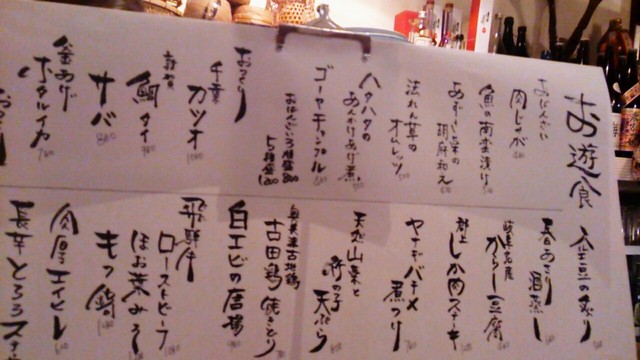 お遊食
おばんざい
肉じゃが
魚の南蛮漬け
胡麻和え
法れん草の
オムレツ
ハタハタの
あんかけあげ煮
ゴーヤチャンプル
おばんざい3種盛 800
5種盛 1200
おつくり
千葉
カツオ
敦賀
鯛
タイ
サバ
釜あげ
ホタルイカ
春あさり
酒蒸し
岐阜名産
からし豆腐
郡上
しか肉ステーキ
ヤナギバチメ
煮つけ
天然山菜と
筍の子
天ぷら
奥美濃古地鶏
古田鶏焼とり
白エビの唐揚
飛騨牛
ローストビーフ
ほお葉みそ
もつ鍋
肉厚エイヒレ
長芋とろろステ